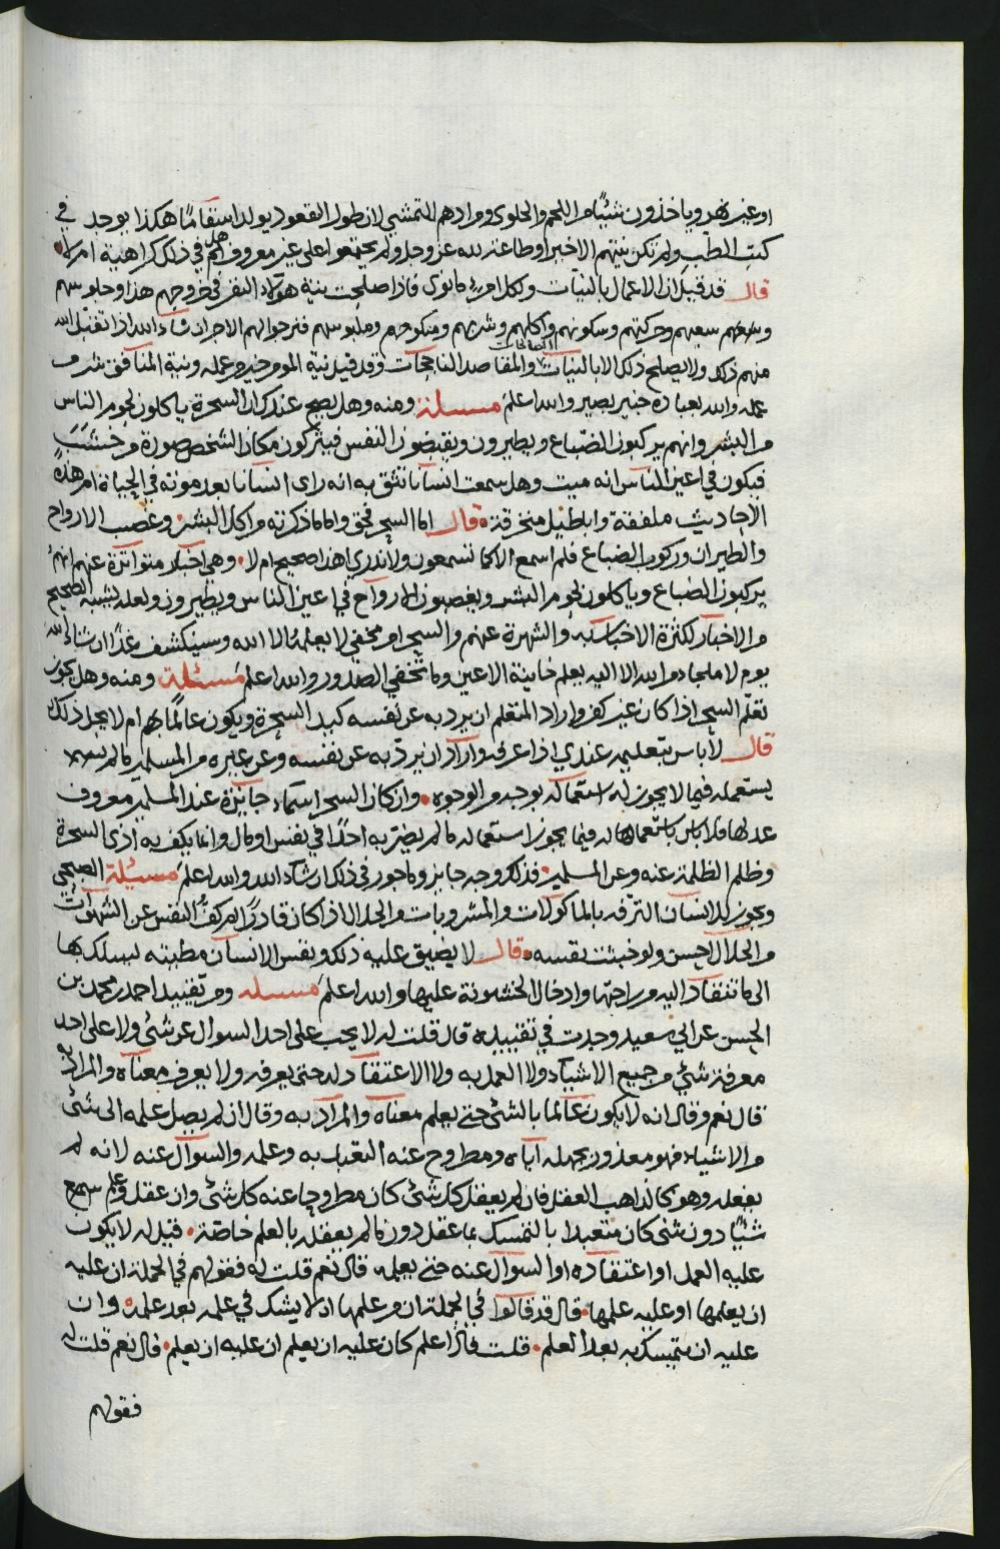 او غيرهم وياخذون شيًا من اللحم والحلوى ومرادهم التمشي لان طول القعود يولد اسقامًا هكذا يوجد في
كتب الطب ولم تكن نيتهم الا خيرا وطاعة لله عز وجل ولم يجتمعوا على غير معروف هل لهم في ذلك كراهية ام لا
قال قد قيل ان الاعمال بالنيات ولكل امرء ما نوى فاذا صلحت نية هؤلاء النفر في خروجهم هذا وجلوسهم
وسعيهم وحركتهم وسكونهم واكلهم وشربهم ومنكوحهم وملبوسهم فنرجوا لهم الاجر ان شاء الله اذا تقبل الله
منهم ذلك ولا يصلح ذلك الا بالنيات الصالحات والمقاصد الناجحات وقد قيل نية المومن خير من عمله ونية المنافق شر من
عمله والله بعباده خبير بصير والله اعلم مسئلة ومنه وهل يصح عندك ان السحرة ياكلون لحوم الناس
من البشر وانهم يركبون الضباع ويطيرون ويقبضون النفس فيتركون مكان الشخص صورة من خشب
فيكون في اعين الناس انه ميت وهل سمعت انسانا تثق به انه راى انسانا بعد موته في الحياة ام هذه
الاحاديث ملفقة واباطيل منخرقة قال اما السحر فحق واما ما ذكرته من اكل البشر وغصب الارواح
والطيران وركوب الضباع فلم اسمع الا كما تسمعون ولا ندري اهذا صحيح ام لا وهي اخبار متواترة عنهم انهم
يركبون الضباع وياكلون لحوم البشر ويغصبون الارواح في اعين الناس ويطيرون ولعله يشبه الصحيح
من الاخبار لكثرة الاخبار به والشهرة عنهم والسحر امر مخفي لا يعلمه الا الله وسينكشف غدًا ان شاء الله
يوم لا ملجاء من الله الا اليه يعلم خاينة الاعين وما تخفي الصدور والله اعلم مسئلة ومنه وهل يجوز
تعلم السحر اذا كان غير كفر واراد المتعلم ان يرد به عن نفسه كيد السحرة ويكون عالمًا بهم ام لا يجوز ذلك
قال لا باس بتعليمه عندي اذا عرفه واراد ان يرد به عن نفسه وعن غيره من المسلمين ما لم
يستعمله فيما لا يجوز له استعماله بوجه من الوجوه وان كان السحر اسماء جايزة عند المسلمين معروف
عدلها فلا باس باستعمالها له فيما يجوز استعماله ما لم يضر به احدًا في نفس او مال وانما يكف به اذى السحرة
وظلم الظلمة عنه وعن المسلمين فذلك وجه جايز وماجور في ذلك ان شاء الله والله اعلم مسئلة الصبحي
ويجوز للانسان الترفه بالماكولات والمشروبات من الحلال اذا كان قادرًا لم كف النفس عن الشهوات
من الحلال احسن ولو خبثت نفسه قال لا يضيق عليه ذلك ونفس الانسان مطيته يسلك بها
الى ما تنقاد اليه من راحتها وادخال الخشونة عليها والله اعلم مسئله ومن تقييد احمد بن محمد بن
الحسن عن ابي سعيد وجدت في تقييده قال قلت له لا يجب على احد السوال عن شئ ولا على احد
معرفة شئ من جميع الاشياء ولا العمل به ولا الاعتقاد له حتى يعرفه ولا يعرف معناه والمراد به
قال نعم وقال انه لا يكون عالما بالشئ حتى يعلم معناه والمراد به وقال ان لم يصل علمه الى شئ
من الاشياء فهو معذور بجهله اياه ومطروح عنه التعبد به وعلمه والسوال عنه لانه لم
يعقله وهو كالذاهب العقل فان لم يعقل كل شئ كان مطروحا عنه كل شئ وان عقل وعلم سمع
شيًا دون شئ كان متعبدا بالتمسك بما عقل دون ما لم يعقله بالعلم خاصة قيل له لا يكون
عليه العمل او اعتقاده او السوال عنه حتى يعلمه قال نعم قلت له فقولهم في الجملة ان عليه
ان يعلمها او عليه علمها قال قد قالوا في الجملة ان من علمها ان لا يشك في علمه بعد علمه وان
عليه ان يتمسك به بعد العلم قلت فاذا علم كان عليه ان يعلم ان عليه ان يعلم قال نعم قلت له
فقولهم